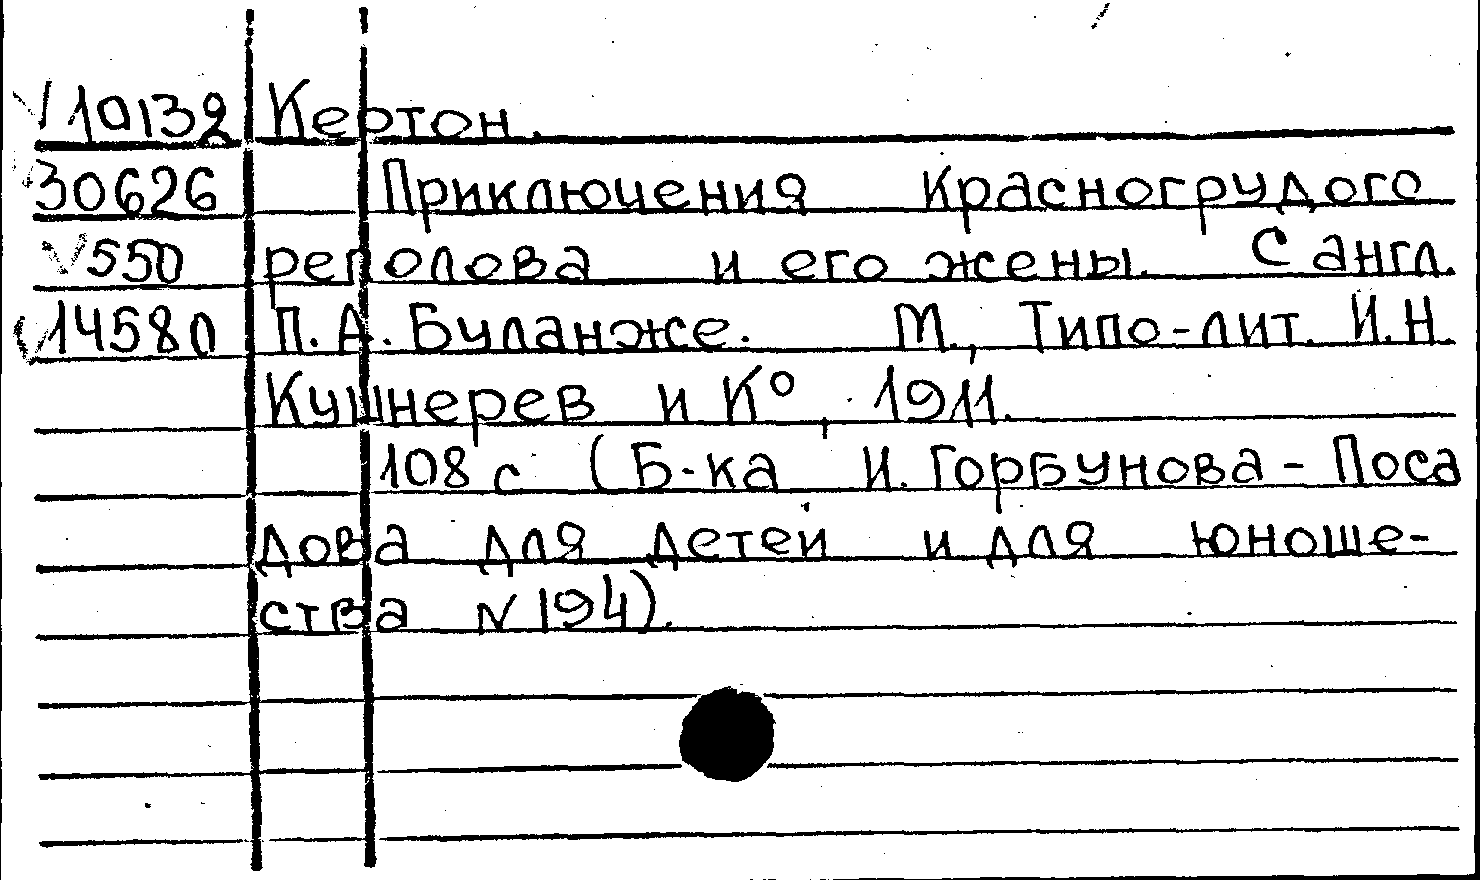 √10132 Кертон.
30626 Приключения Красногрудого
√550 реполова и его жены. С англ.
√14580 П.А. Буланже. М., Типо-лит. И.Н.
Кушнерев и К°, 1911.
108 с (Б-ка И. Горбунова-Поса
дова для детей и для юноше-
ства N 194).